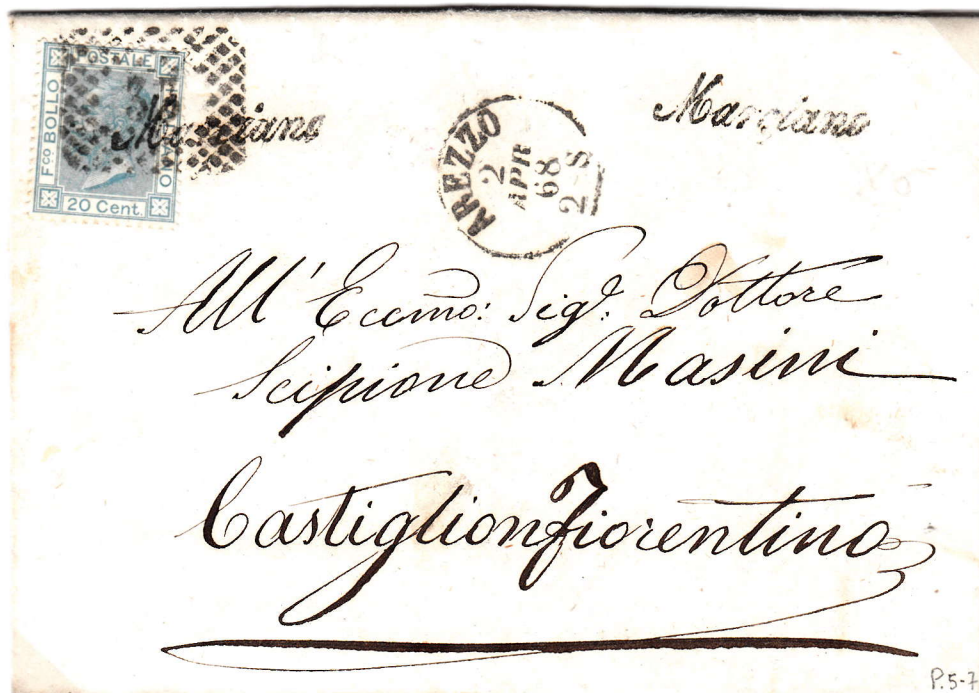 POSTALE
Fco BOLLO
20 Cent.
Marciano
AREZZO
2
APR
68
2-S
Marciano
All' Eccmo: Sigr. Dottore
Scipione Masini
Castiglion Fiorentino
P.5-7